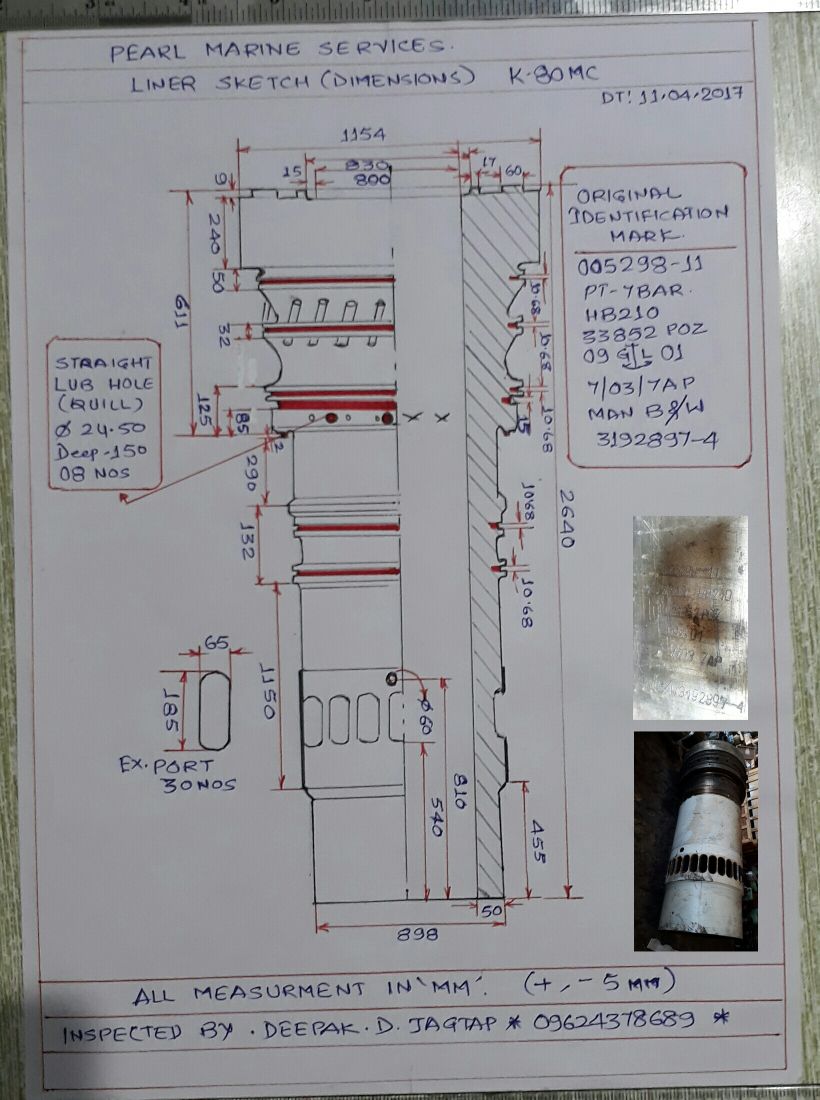 PEARL MARINE SERVICES.
LINER SKETCH (DIMENSIONS) K-80MC
DT! 11.04.2017
1154
830
15
800
17
60
9
240
50
611
32
125
85
2
290
132
1150
10.68
10.68
10.68
15
10.68
10.68
2640
STRAIGHT
LUB HOLE
(QUILL)
Ø 24.50
Deep-150
08 NOS
ORIGINAL
IDENTIFICATION
MARK.
005298-11
PT-7BAR.
HB210
33852 POZ
09 GL 01
7/03/7AP
MAN B&W
3192897-4
3192897-4
65
185
EX. PORT
30 NOS
Ø60
810
540
455
50
898
ALL MEASURMENT IN 'MM'. (+,- 5 MM)
INSPECTED BY . DEEPAK . D. JAGTAP * 09624378689 *